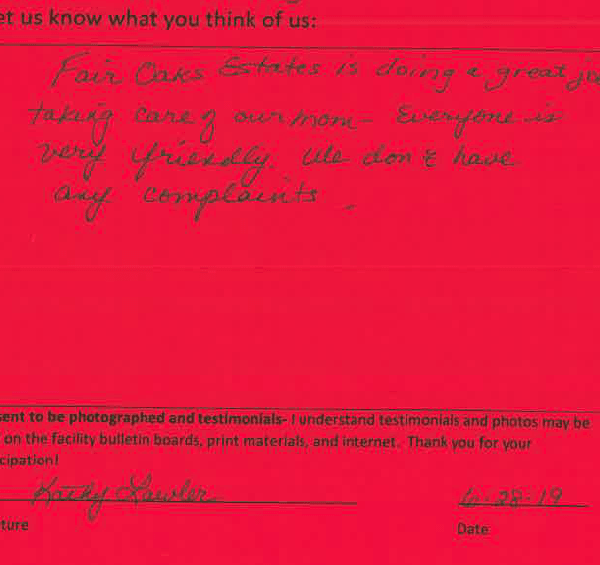 et us know what you think of us:
Fair Oaks Estates is doing a great jo
taking care of our mom - Everyone is
very friendly. We don't have
any complaints.
sent to be photographed and testimonials- I understand testimonials and photos may be
on the facility bulletin boards, print materials, and internet. Thank you for your
cipation!
Kathy Lawler 6-28-19
ture Date